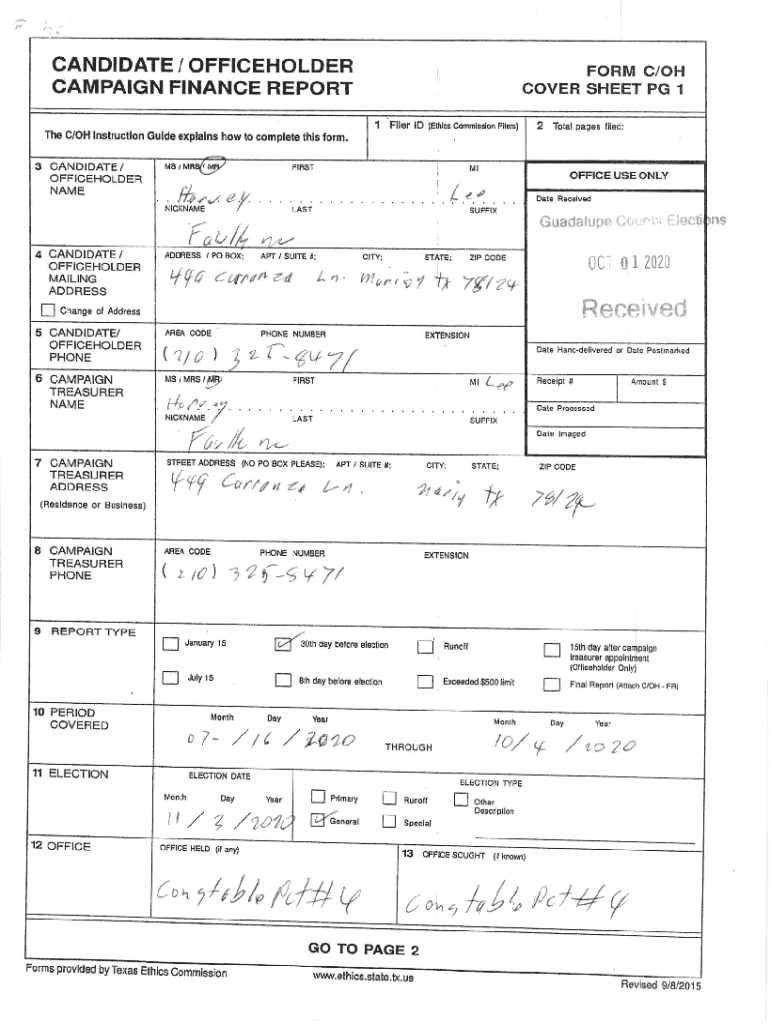 CANDIDATE / OFFICEHOLDER
CAMPAIGN FINANCE REPORT
FORM C/OH
COVER SHEET PG 1
The C/OH Instruction Guide explains how to complete this form.
1 Filer ID (Ethics Commission Filers)
2 Total pages filed:
3 CANDIDATE / OFFICEHOLDER NAME
MS / MRS / MR FIRST MI
Harvey Lee
NICKNAME LAST SUFFIX
OFFICE USE ONLY
Date Received
Guadalupe County Elections
OCT 01 2020
Received
4 CANDIDATE / OFFICEHOLDER MAILING ADDRESS
Change of Address
ADDRESS / PO BOX; APT / SUITE #; CITY; STATE; ZIP CODE
449 Carranza Ln. Marion tx 78124
5 CANDIDATE/ OFFICEHOLDER PHONE
AREA CODE PHONE NUMBER EXTENSION
(210) 325-8471
Date Hand-delivered or Date Postmarked
6 CAMPAIGN TREASURER NAME
MS / MRS / MR FIRST MI Lee
Harvey
NICKNAME LAST SUFFIX
Receipt # Amount $
Date Processed
Date Imaged
7 CAMPAIGN TREASURER ADDRESS
(Residence or Business)
STREET ADDRESS (NO PO BOX PLEASE); APT / SUITE #; CITY; STATE; ZIP CODE
449 Carranza Ln. tx 78124
8 CAMPAIGN TREASURER PHONE
AREA CODE PHONE NUMBER EXTENSION
(210) 325-8471
9 REPORT TYPE
January 15
30th day before election
Runoff
15th day after campaign treasurer appointment (Officeholder Only)
July 15
8th day before election
Exceeded $500 limit
Final Report (Attach C/OH - FR)
10 PERIOD COVERED
Month Day Year
07- / 16 / 2020
THROUGH
Month Day Year
10 / 4 / 2020
11 ELECTION
ELECTION DATE
Month Day Year
11 / 3 / 2020
ELECTION TYPE
Primary
Runoff
Other Description
General
Special
12 OFFICE
OFFICE HELD (if any)
Constable Pct # 4
13 OFFICE SOUGHT (if known)
Constable Pct # 4
GO TO PAGE 2
Forms provided by Texas Ethics Commission
www.ethics.state.tx.us
Revised 9/8/2015